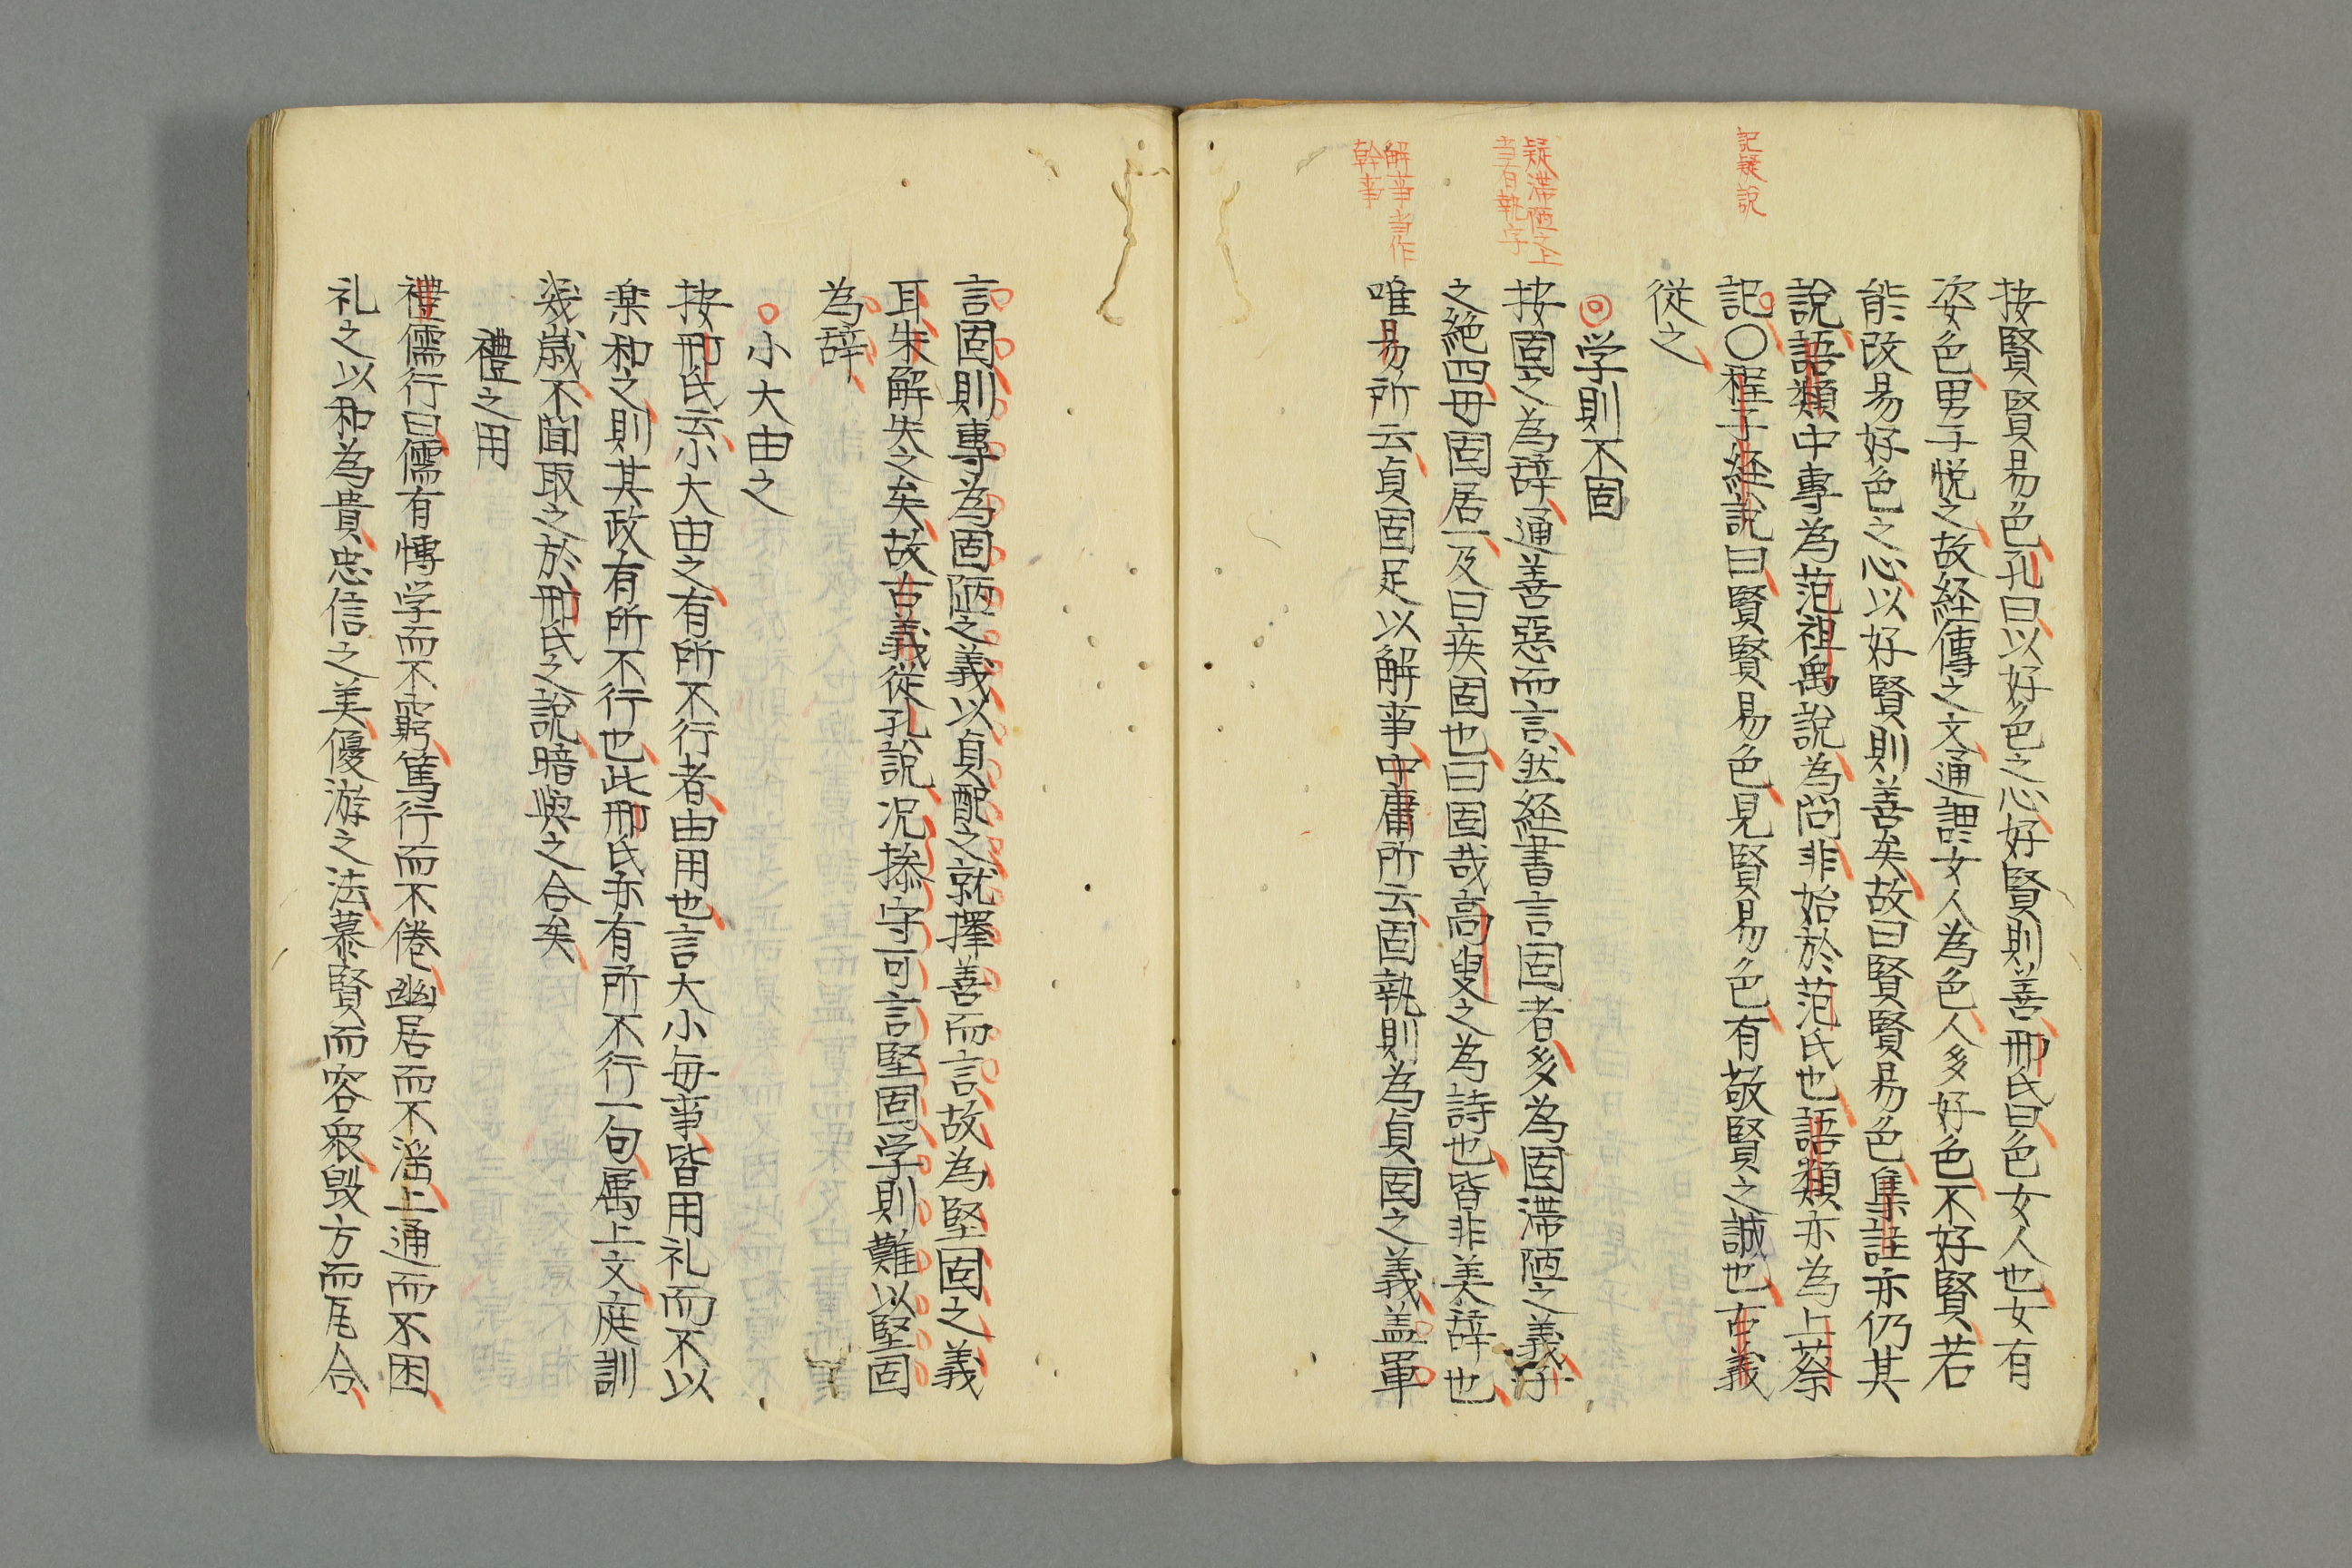 按賢賢易色孔曰以好色之心好賢則善邢氏曰色女人也女有
姿色男子悦之故経傳之文通謂女人為色人多好色不好賢若
能改易好色之心以好賢則善矣故曰賢賢易色集註亦仍其
說語類中專為范祖禹說為問非始於范氏也語類亦為上蔡
記疑說
記〇程子経説曰賢賢易色見賢易色有敬賢之誠也古義
從之
学則不固
疑滞陋之上
当有執字
按固之為辞通善惡而言然経書言固者多為固滞陋之義子
之絶四毋固居一及曰疾固也曰固哉高叟之為詩也皆非美辞也
解事当作
幹事
唯易所云貞固足以解事中庸所云固執則為貞固之義盖単
言固則專為固陋之義以貞配之就擇善而言故為堅固之義
耳朱解失之矣故古義從孔說况摻守可言堅固学則難以堅固
為辞
小大由之
按邢氏云小大由之有所不行者由用也言大小每事皆用礼而不以
楽和之則其政有所不行也此邢氏亦有所不行一句属上文庭訓
幾歳不聞取之於邢氏之說暗與之合矣
禮之用
禮儒行曰儒有博学而不窮篤行而不倦幽居而不淫上通而不困
礼之以和為貴忠信之美優游之法慕賢而容衆毀方而瓦合